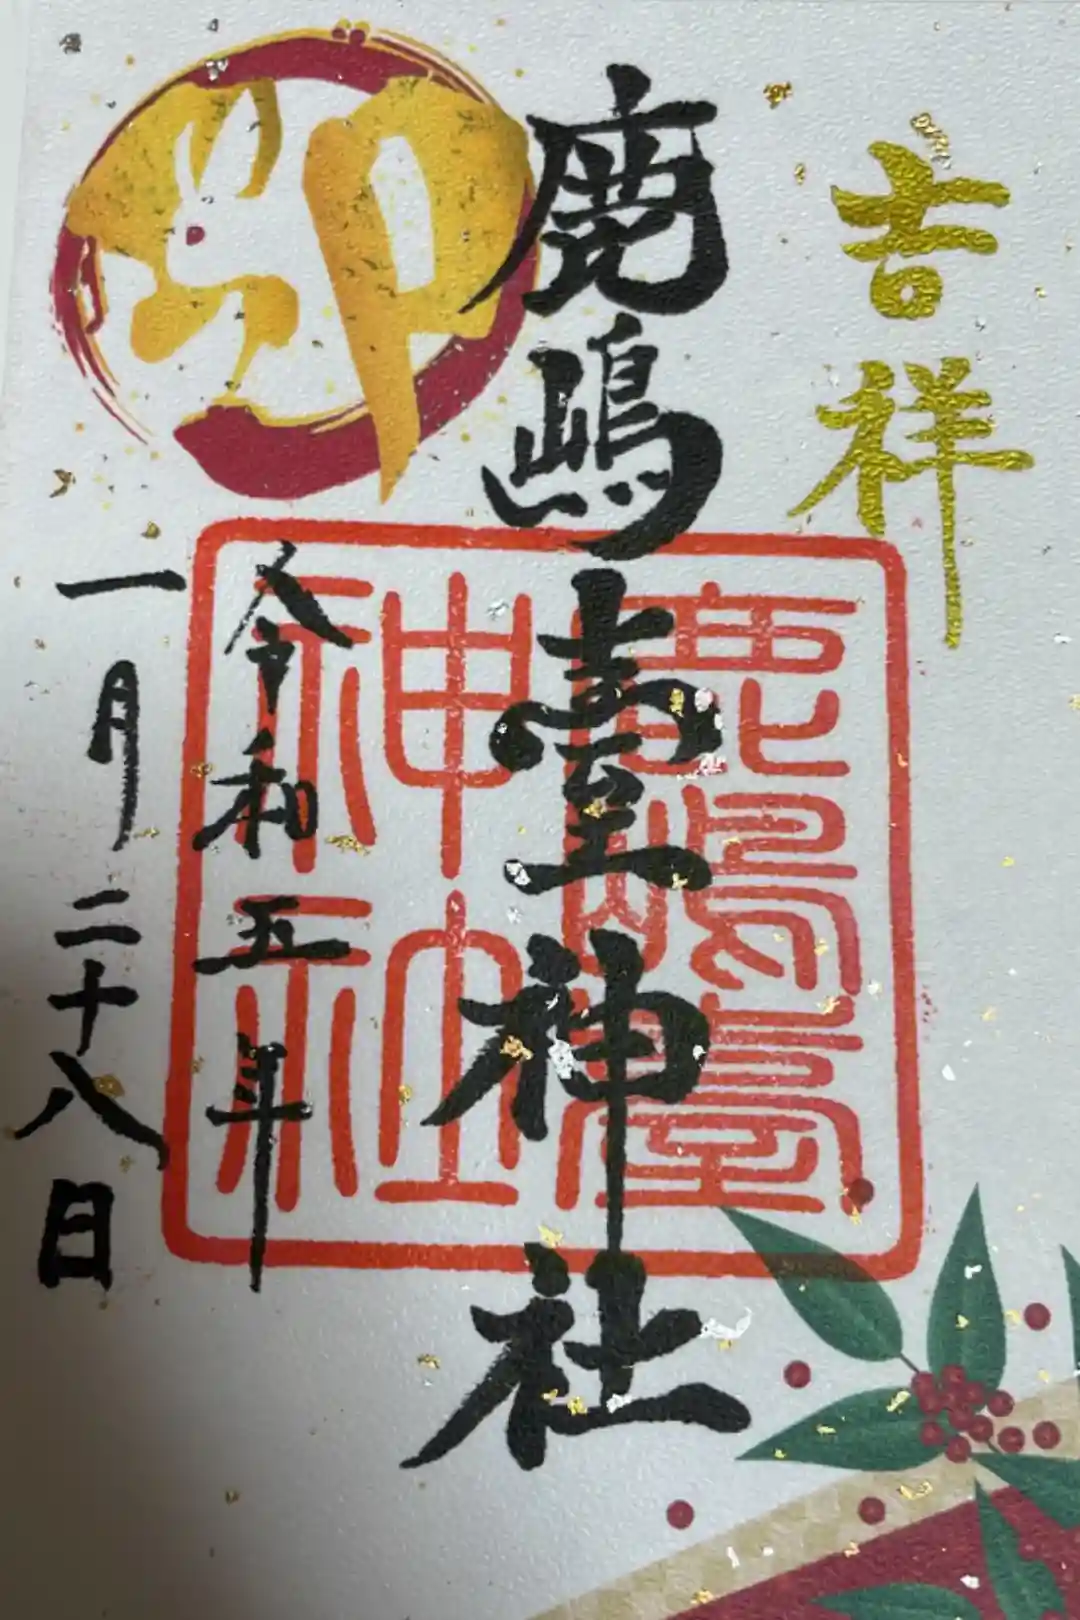 吉祥
鹿嶋臺神社
鹿嶋臺
神社
令和五年
一月二十八日
卯